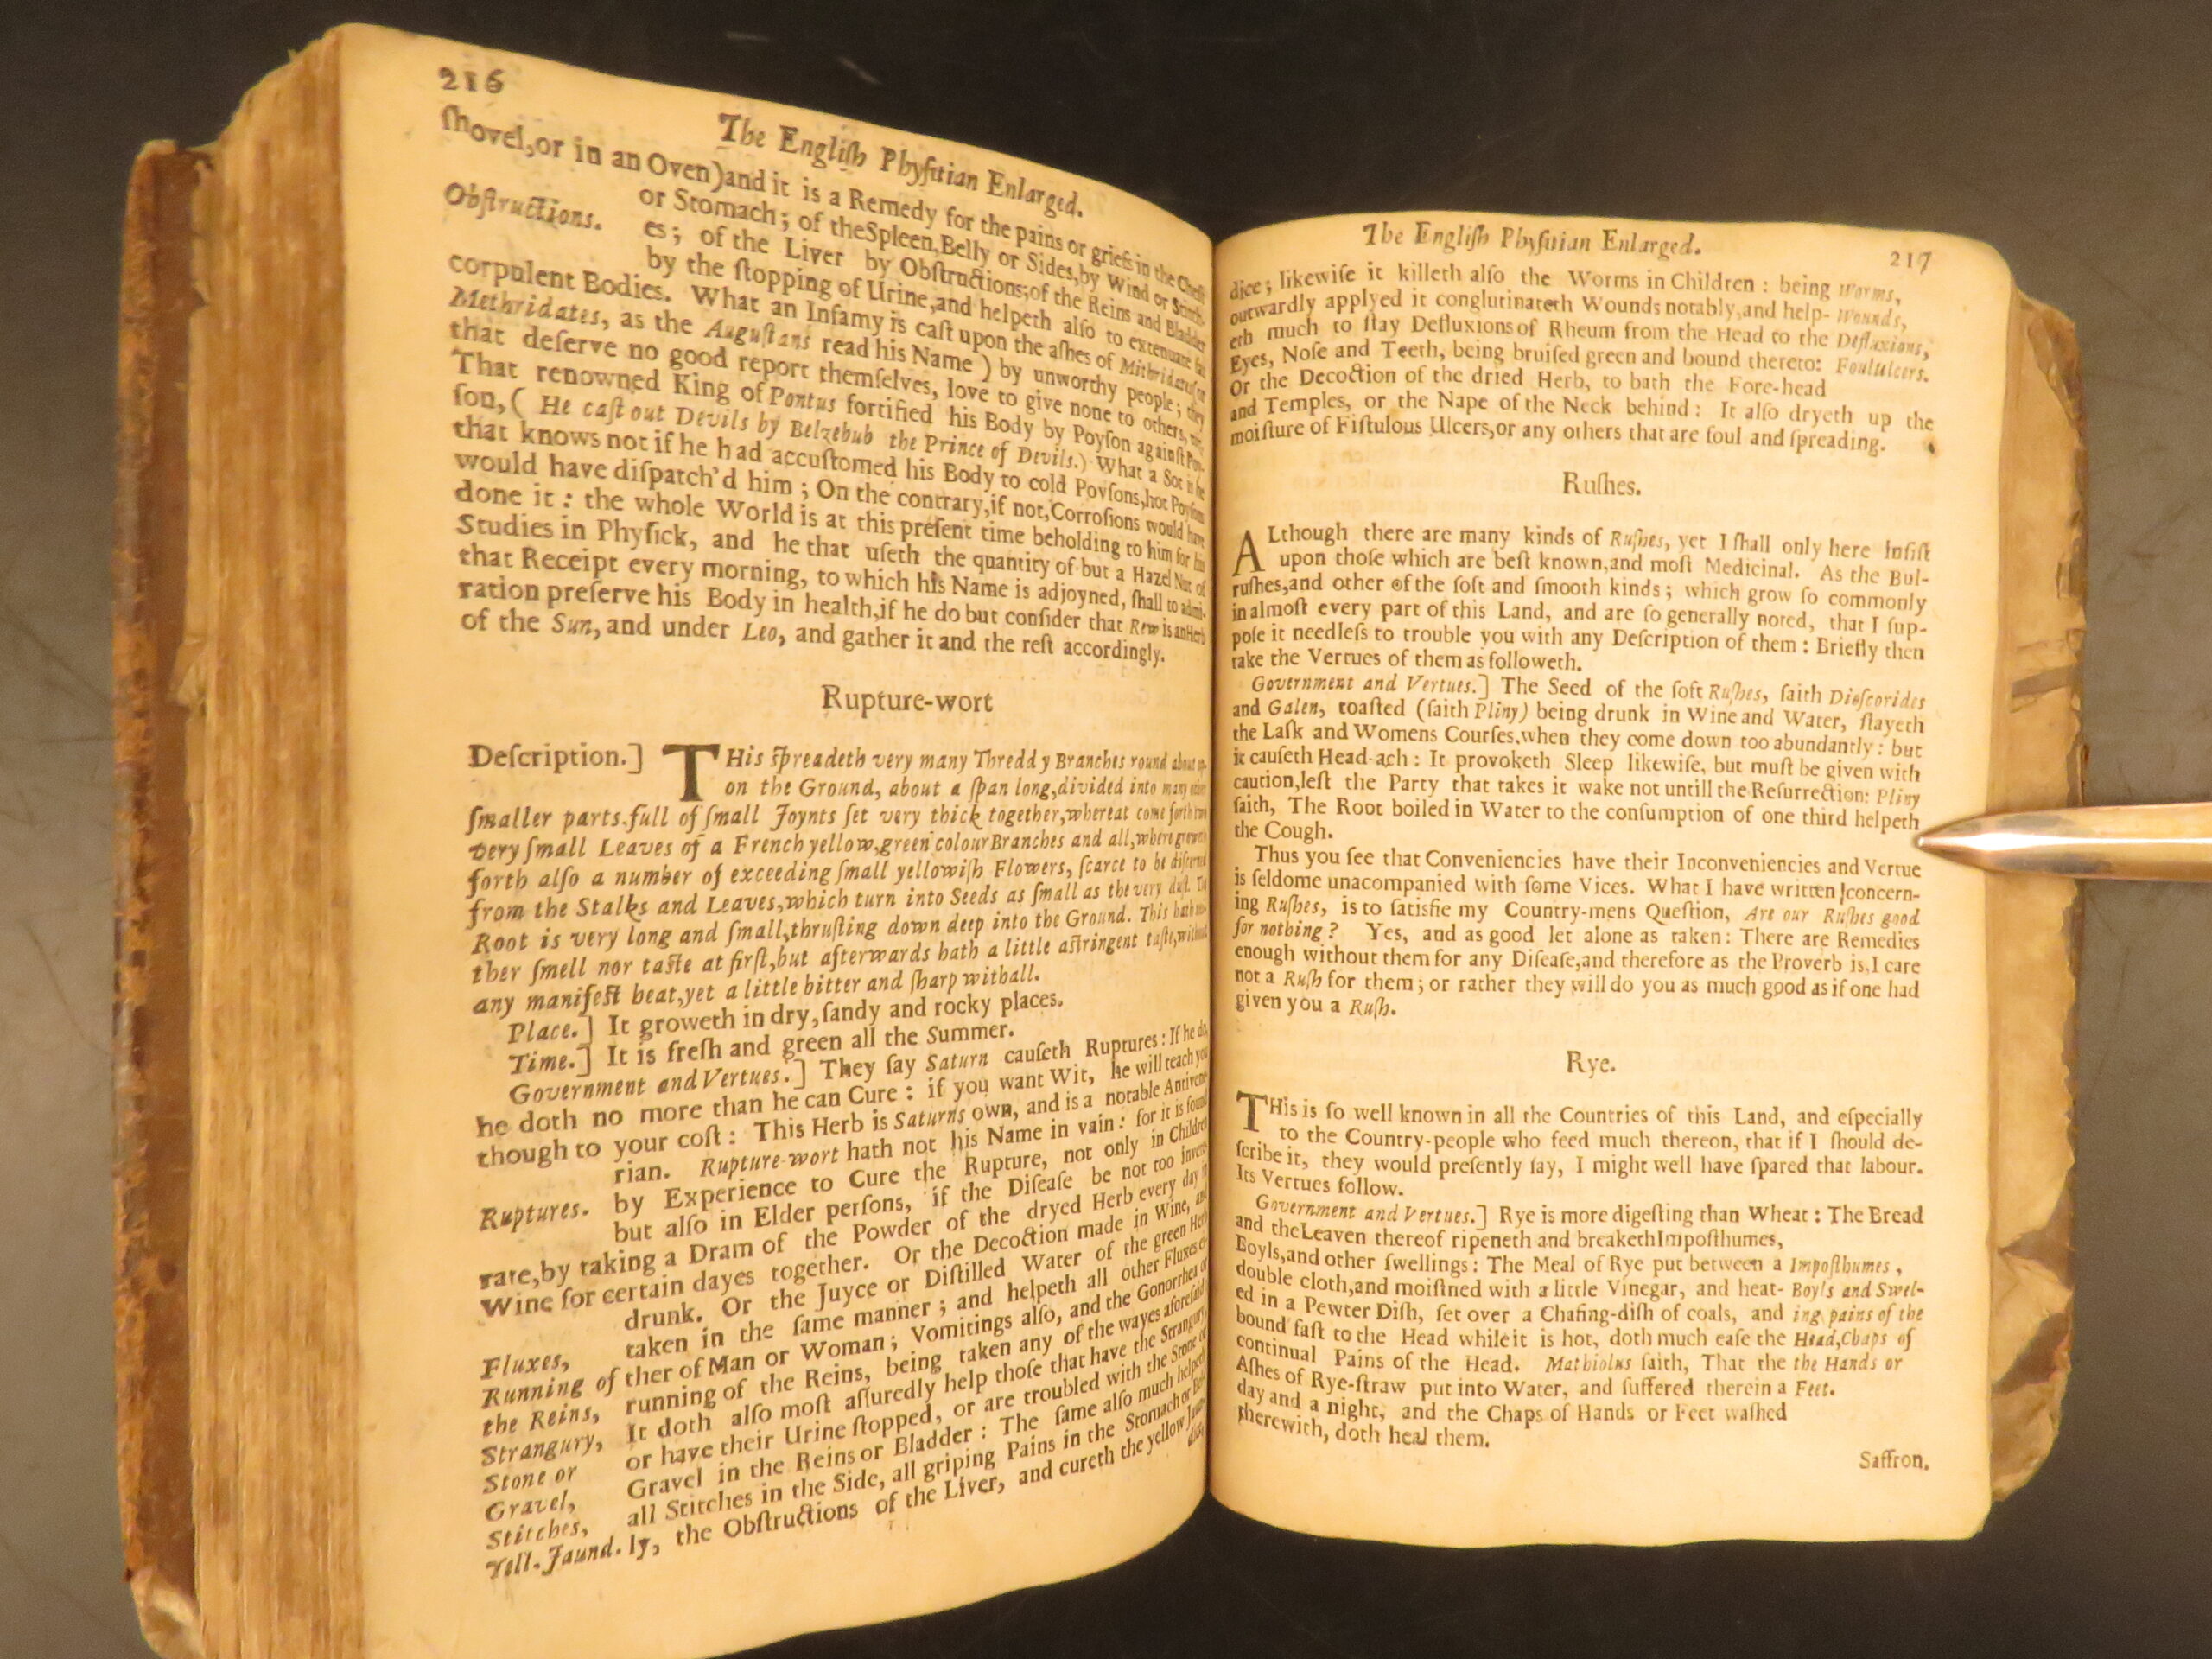 216
The Engliſh Phyſitian Enlarged.
ſhovel,or in an Oven)and it is a Remedy for the pains or griefs in the Cheſt
or Stomach; of theSpleen,Belly or Sides,by Wind or Stitch-
Obſtructions.
es; of the Liver by Obſtructions;of the Reins and Bladder
by the ſtopping of Urine,and helpeth alſo to extenuate fat
corpulent Bodies. What an Infamy is caſt upon the aſhes of Mithridates,or
Methridates, as the Auguſtans read his Name ) by unworthy people; they
that deſerve no good report themſelves, love to give none to others,
That renowned King of Pontus fortified his Body by Poyſon againſt Poy-
ſon,( He caſt out Devils by Belzebub the Prince of Devils.) What a Sot is he
that knows not if he had accuſtomed his Body to cold Poyſons,hot Poyſons
would have diſpatch'd him ; On the contrary,if not,Corroſions would have
done it : the whole World is at this preſent time beholding to him for his
Studies in Phyſick, and he that uſeth the quantity of but a Hazel Nut of
that Receipt every morning, to which his Name is adjoyned, ſhall to admi-
ration preſerve his Body in health,if he do but conſider that Rew is an Herb
of the Sun, and under Leo, and gather it and the reſt accordingly.
Rupture-wort
Deſcription.] THis ſpreadeth very many Threddy Branches round about up-
on the Ground, about a ſpan long,divided into many other
ſmaller parts,full of ſmall Joynts ſet very thick together,whereat come forth two
very ſmall Leaves of a French yellow,green colour Branches and all,where groweth
forth alſo a number of exceeding ſmall yellowiſh Flowers, ſcarce to be diſcerned
from the Stalks and Leaves,which turn into Seeds as ſmall as the very duſt. The
Root is very long and ſmall,thruſting down deep into the Ground. This hath nei-
ther ſmell nor taſte at firſt,but afterwards hath a little aſtringent taſte,without
any manifeſt heat,yet a little bitter and ſharp withall.
Place.] It groweth in dry, ſandy and rocky places.
Time.] It is freſh and green all the Summer.
Government and Vertues.] They ſay Saturn cauſeth Ruptures : If he do,
he doth no more than he can Cure : if you want Wit, he will teach you
though to your coſt : This Herb is Saturns own, and is a notable Antivene-
rian. Rupture-wort hath not his Name in vain : for it is found
Ruptures. by Experience to Cure the Rupture, not only in Children
but alſo in Elder perſons, if the Diſeaſe be not too invete-
rate,by taking a Dram of the Powder of the dryed Herb every day in
Wine for certain dayes together. Or the Decoction made in Wine, and
drunk. Or the Juyce or Diſtilled Water of the green Herb
Fluxes, taken in the ſame manner ; and helpeth all other Fluxes ei-
Running of ther of Man or Woman ; Vomitings alſo, and the Gonorrhea or
the Reins, running of the Reins, being taken any of the wayes aforeſaid
Strangury, It doth alſo moſt aſſuredly help thoſe that have the Strangury,
Stone or or have their Urine ſtopped, or are troubled with the Stone or
Gravel, Gravel in the Reins or Bladder : The ſame alſo much helpeth
Stitches, all Stitches in the Side, all griping Pains in the Stomach or Belly
Yell. Jaund. ly, the Obſtructions of the Liver, and cureth the yellow Jaun-
dice;
The Engliſh Phyſitian Enlarged. 217
dice ; likewiſe it killeth alſo the Worms in Children : being Worms,
outwardly applyed it conglutinateth Wounds notably,and help- Wounds,
eth much to ſtay Defluxions of Rheum from the Head to the Defluxions,
Eyes, Noſe and Teeth, being bruiſed green and bound thereto: Foul ulcers.
Or the Decoction of the dried Herb, to bath the Fore-head
and Temples, or the Nape of the Neck behind : It alſo dryeth up the
moiſture of Fiſtulous Ulcers,or any others that are foul and ſpreading.
Ruſhes.
ALthough there are many kinds of Ruſhes, yet I ſhall only here inſiſt
upon thoſe which are beſt known,and moſt Medicinal. As the Bul-
ruſhes,and other of the ſoft and ſmooth kinds ; which grow ſo commonly
in almoſt every part of this Land, and are ſo generally noted, that I ſup-
poſe it needleſs to trouble you with any Deſcription of them : Briefly then
take the Vertues of them as followeth.
Government and Vertues.] The Seed of the ſoft Ruſhes, ſaith Dioſcorides
and Galen, toaſted (ſaith Pliny) being drunk in Wine and Water, ſtayeth
the Laſk and Womens Courſes,when they come down too abundantly : but
it cauſeth Head-ach : It provoketh Sleep likewiſe, but muſt be given with
caution,leſt the Party that takes it wake not untill the Reſurrection: Pliny
ſaith, The Root boiled in Water to the conſumption of one third helpeth
the Cough.
Thus you ſee that Conveniencies have their Inconveniencies and Vertue
is ſeldome unacompanied with ſome Vices. What I have written concern-
ing Ruſhes, is to ſatisfie my Country-mens Queſtion, Are our Ruſhes good
for nothing ? Yes, and as good let alone as taken : There are Remedies
enough without them for any Diſeaſe,and therefore as the Proverb is,I care
not a Ruſh for them ; or rather they will do you as much good as if one had
given you a Ruſh.
Rye.
THis is ſo well known in all the Countries of this Land, and eſpecially
to the Country-people who feed much thereon, that if I ſhould de-
ſcribe it, they would preſently ſay, I might well have ſpared that labour.
Its Vertues follow.
Government and Vertues.] Rye is more digeſting than Wheat : The Bread
and the Leaven thereof ripeneth and breaketh Impoſthumes,
Boyls,and other ſwellings : The Meal of Rye put between a Impoſthumes,
double cloth,and moiſtned with a little Vinegar, and heat- Boyls and Swel-
ed in a Pewter Diſh, ſet over a Chafing-diſh of coals, and ing pains of the
bound faſt to the Head while it is hot, doth much eaſe the Head,Chaps of
continual Pains of the Head. Mathiolus ſaith, That the the Hands or
Aſhes of Rye-ſtraw put into Water, and ſuffered therein a Feet.
day and a night, and the Chaps of Hands or Feet waſhed
therewith, doth heal them.
Saffron.